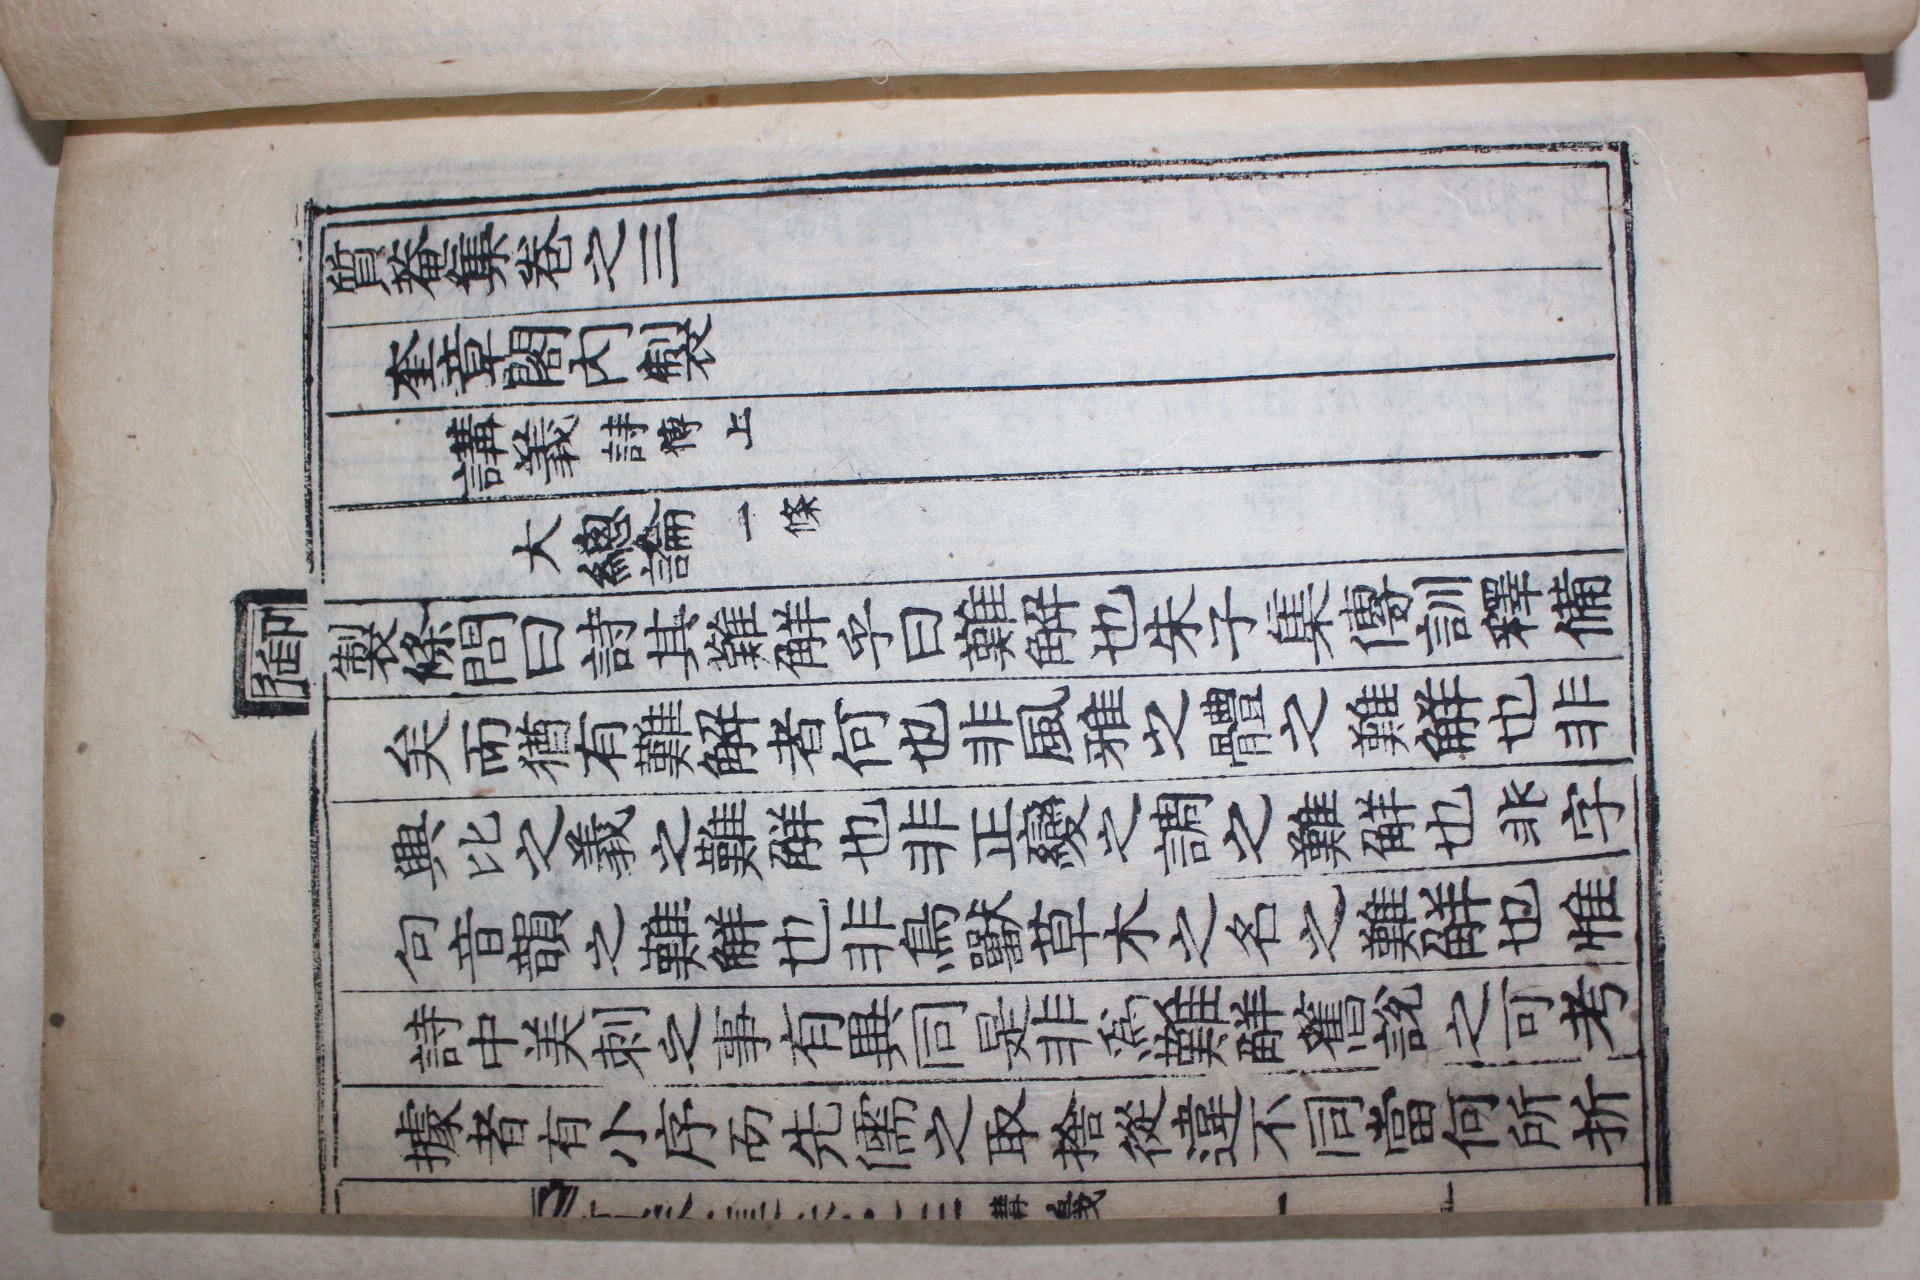 質菴集卷之三
奎章閣內製
講義 詩傳上
大總論 一條
御製條問曰詩其難觧乎曰難觧也朱子集傳訓釋備
矣而猶有難解者何也非風雅之體之難觧也非
興比之義之難觧也非正變之調之難觧也非字
句音韻之難觧也非鳥獸草木之名之難觧也惟
詩中美刺之事有異同是非爲難觧舊說之可考
據者有小序而先儒之取捨從違不同當何所折
集卷之三 講義 一